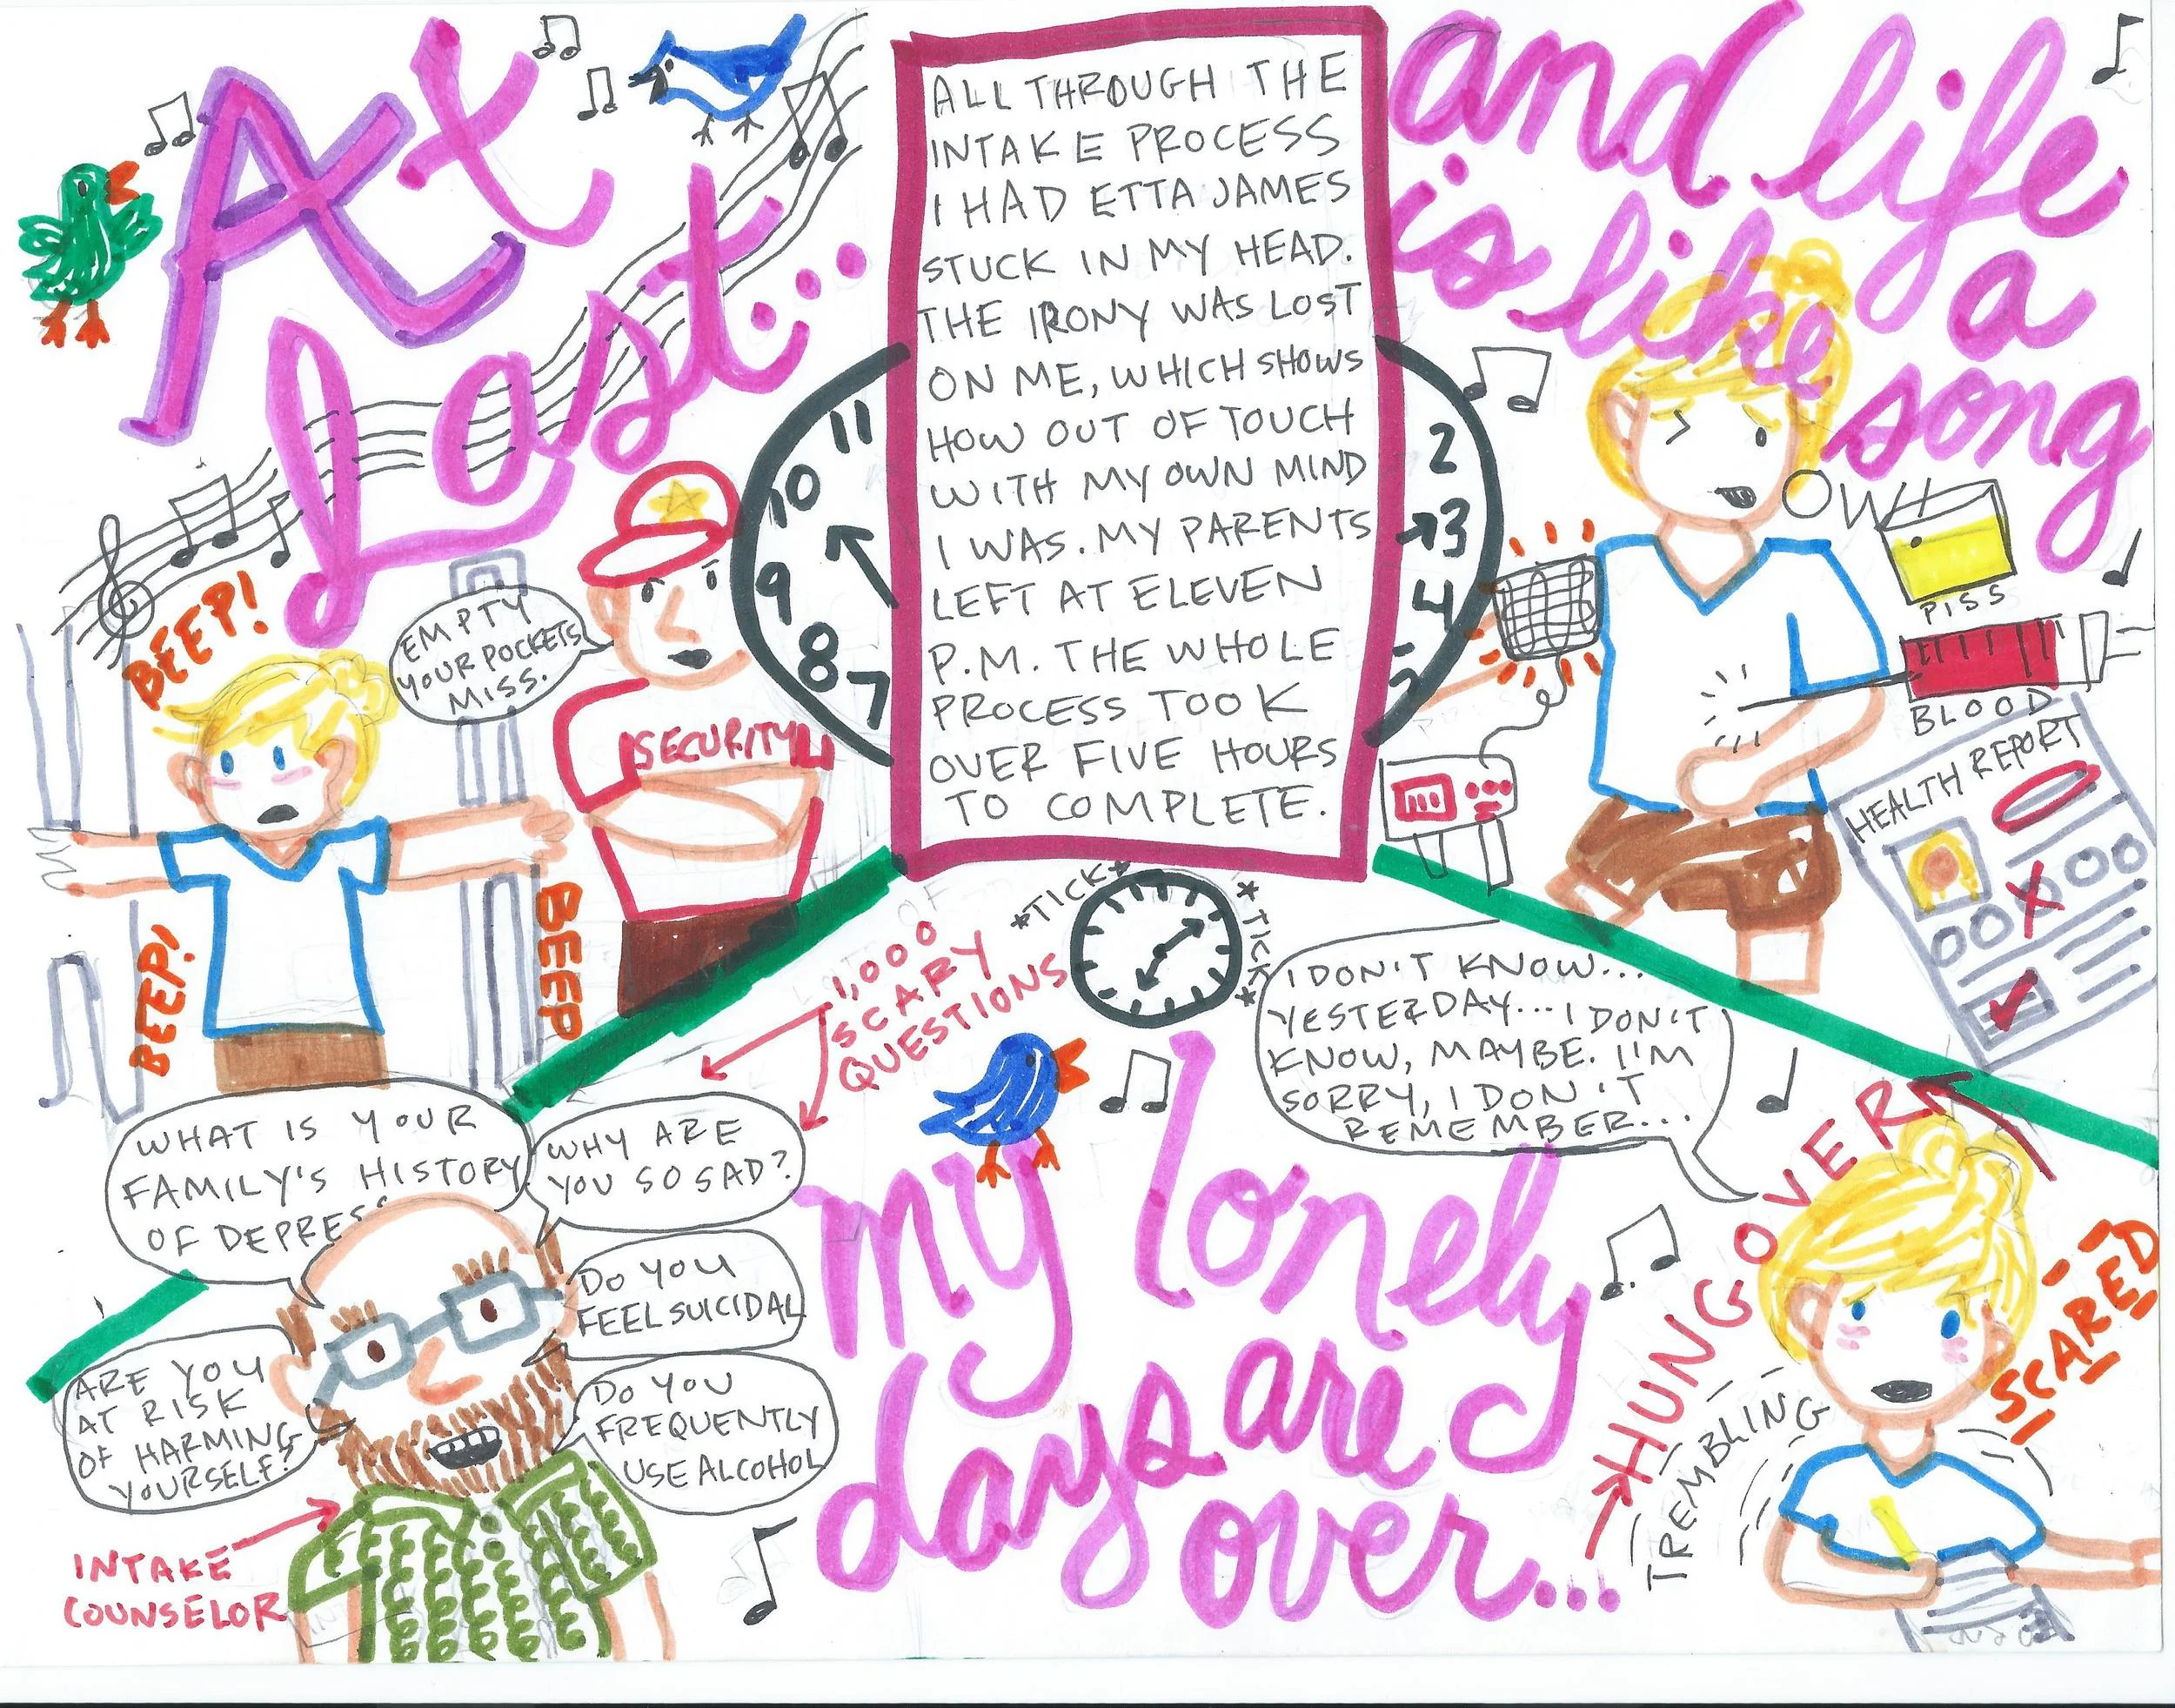 At
Last...
ALL THROUGH THE
INTAKE PROCESS
I HAD ETTA JAMES
STUCK IN MY HEAD.
THE IRONY WAS LOST
ON ME, WHICH SHOWS
HOW OUT OF TOUCH
WITH MY OWN MIND
I WAS. MY PARENTS
LEFT AT ELEVEN
P.M. THE WHOLE
PROCESS TOOK
OVER FIVE HOURS
TO COMPLETE.
and life
is like a
song
11
10
9
8
7
2
3
4
5
BEEP!
EMPTY
YOUR POCKETS
MISS.
SECURITY
BEEP!
BEEP
OW!
PISS
BLOOD
HEALTH REPORT
*TICK*
*TICK*
1,000
SCARY
QUESTIONS
WHAT IS YOUR
FAMILY'S HISTORY
OF DEPRES
WHY ARE
YOU SO SAD?
DO YOU
FEEL SUICIDAL
ARE YOU
AT RISK
OF HARMING
YOURSELF?
DO YOU
FREQUENTLY
USE ALCOHOL
INTAKE
COUNSELOR
my lonely
days are
over...
I DON'T KNOW...
YESTERDAY...I DON'T
KNOW, MAYBE. I'M
SORRY, I DON'T
REMEMBER...
HUNGOVER
TREMBLING
SCARED